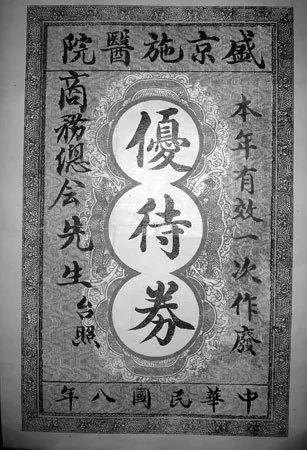 盛京施醫院
本年有效一次作廢
優待券
商務總会先生台照
中華民國八年